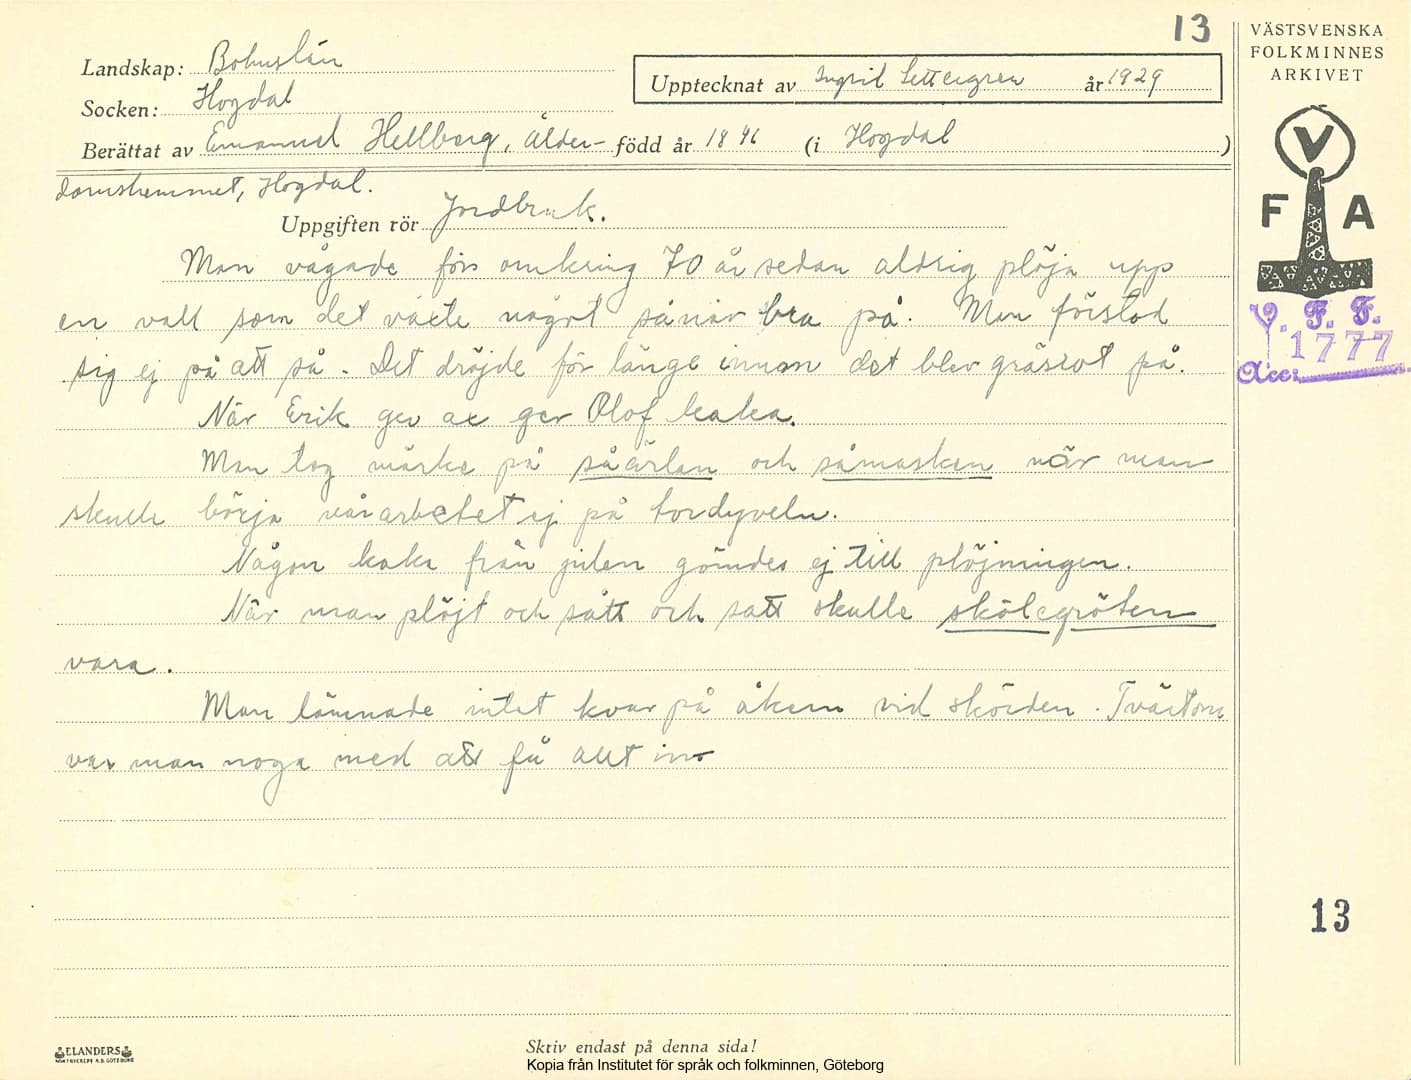 13
VÄSTSVENSKA
FOLKMINNES
ARKIVET
Landskap: Bohuslän
Upptecknat av Ingrid Settergren år 1929
Socken: Hogdal
Berättat av Emanuel Hellberg, Ålder- född år 1846 (i Hogdal )
domshemmet, Hogdal.
Uppgiften rör Jordbruk.
V
F A
Man vågade förr omkring 70 år sedan aldrig plöja upp
en vall som det växte något så när bra på. Man förstod
sig ej på att så. Det dröjde för länge innan det blev gräsrot på.
V. F. F.
1777
Acc:
När Erik gev ax ger Olof kaka.
Man tog märke på såärlan och såmasken när man
skulle börja vårarbetet ej på tordyveln.
Någon kaka från julen gömdes ej till plöjningen.
När man plöjt och sått och satt skulle skölegröten
vara.
Man lämnade intet kvar på åkern vid skörden. Tvärtom
var man noga med att få allt in
13
ELANDERS
Skriv endast på denna sida!
Kopia från Institutet för språk och folkminnen, Göteborg